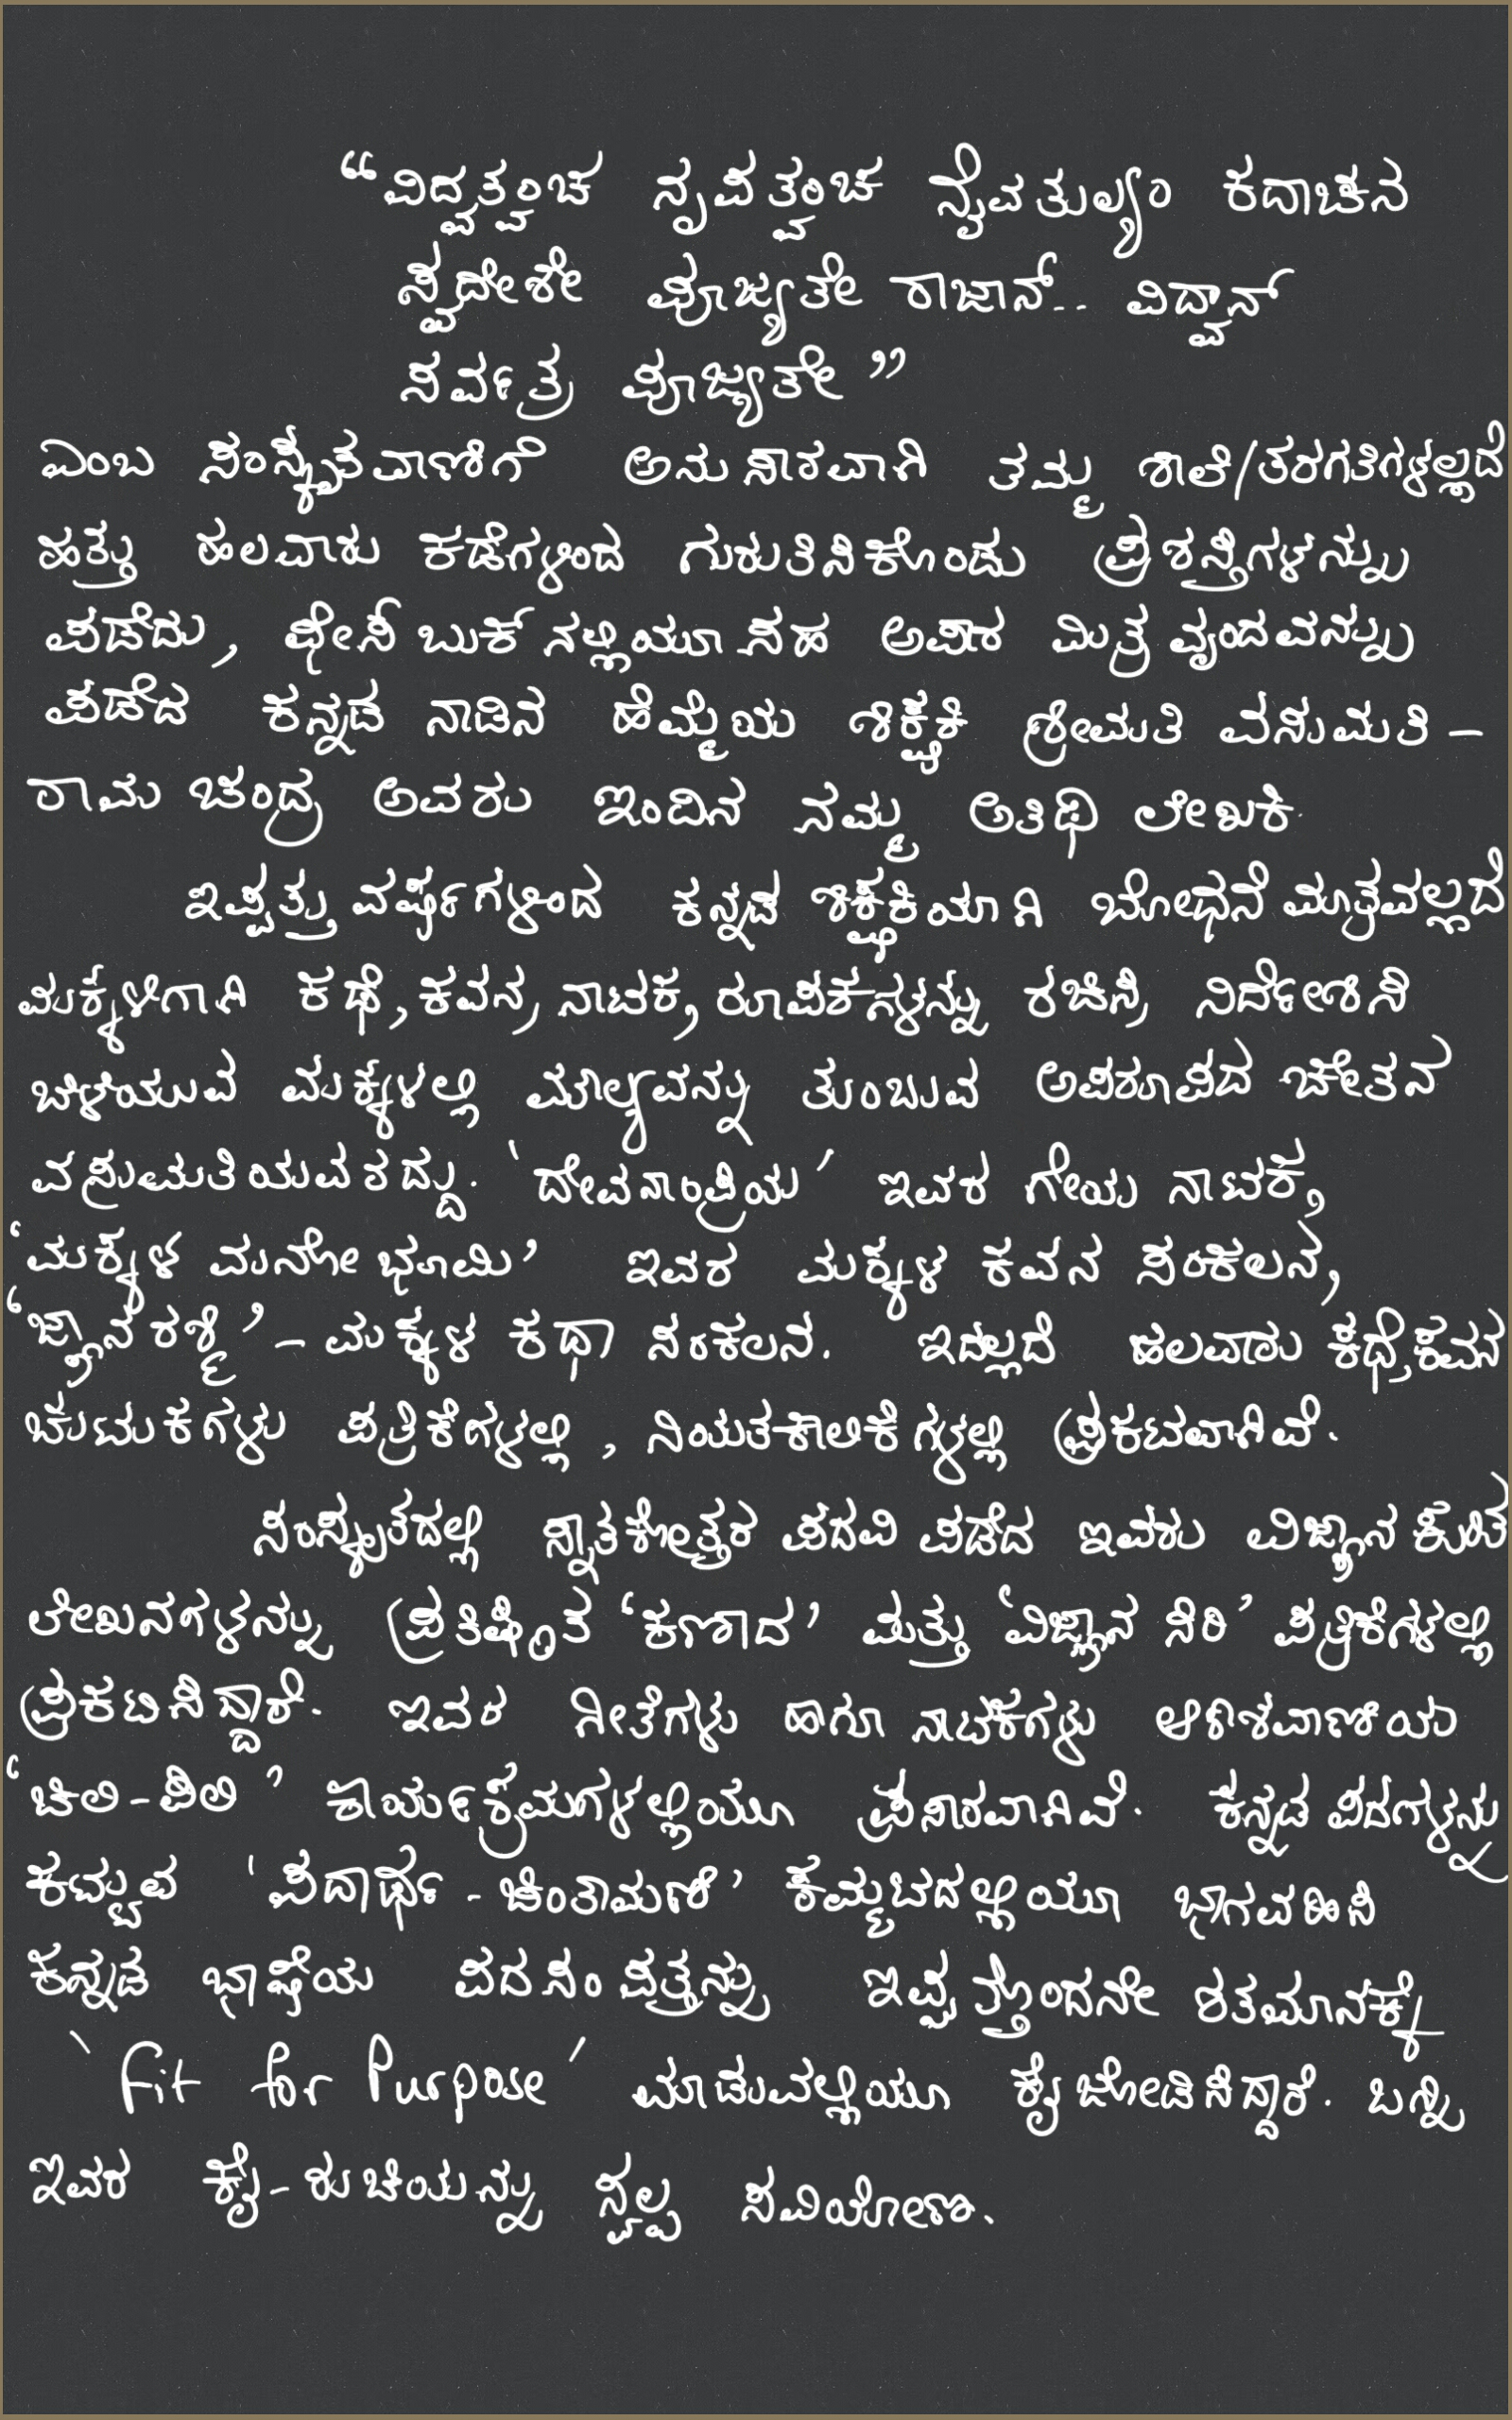 “ವಿದ್ವತ್ವಂಚ ನೃಪತ್ವಂಚ ನೈವತುಲ್ಯಂ ಕದಾಚನ
ಸ್ವದೇಶೇ ಪೂಜ್ಯತೇ ರಾಜಾನ್.. ವಿದ್ವಾನ್
ಸರ್ವತ್ರ ಪೂಜ್ಯತೇ”
ಎಂಬ ಸಂಸ್ಕೃತವಾಣಿಗೆ ಅನುಸಾರವಾಗಿ ತಮ್ಮ ಶಾಲೆ/ತರಗತಿಗಳಲ್ಲದೆ
ಹತ್ತು ಹಲವಾರು ಕಡೆಗಳಿಂದ ಗುರುತಿಸಿಕೊಂಡು ಪ್ರಶಸ್ತಿಗಳನ್ನು
ಪಡೆದು, ಫೇಸ್ ಬುಕ್ ನಲ್ಲಿಯೂ ಸಹ ಅಪಾರ ಮಿತ್ರ ವೃಂದವನ್ನು
ಪಡೆದ ಕನ್ನಡ ನಾಡಿನ ಹೆಮ್ಮೆಯ ಶಿಕ್ಷಕಿ ಶ್ರೀಮತಿ ವಸುಮತಿ -
ರಾಮ ಚಂದ್ರ ಅವರು ಇಂದಿನ ನಮ್ಮ ಅತಿಥಿ ಲೇಖಕಿ.
ಇಪ್ಪತ್ತು ವರ್ಷಗಳಿಂದ ಕನ್ನಡ ಶಿಕ್ಷಕಿಯಾಗಿ ಬೋಧನೆ ಮಾತ್ರವಲ್ಲದೆ
ಮಕ್ಕಳಿಗಾಗಿ ಕಥೆ, ಕವನ, ನಾಟಕ, ರೂಪಕಗಳನ್ನು ರಚಿಸಿ, ನಿರ್ದೇಶಿಸಿ
ಬೆಳೆಯುವ ಮಕ್ಕಳಲ್ಲಿ ಮೌಲ್ಯವನ್ನು ತುಂಬುವ ಅಪರೂಪದ ಚೇತನ
ವಸುಮತಿಯವರದ್ದು. 'ದೇವನಾಂಪ್ರಿಯ' ಇವರ ಗೇಯ ನಾಟಕ,
‘ಮಕ್ಕಳ ಮನೋ ಭೂಮಿ’ ಇವರ ಮಕ್ಕಳ ಕವನ ಸಂಕಲನ,
‘ಜ್ಞಾನ ರಶ್ಮಿ’ - ಮಕ್ಕಳ ಕಥಾ ಸಂಕಲನ. ಇದಲ್ಲದೆ ಹಲವಾರು ಕಥೆ, ಕವನ
ಚುಟುಕಗಳು ಪತ್ರಿಕೆಗಳಲ್ಲಿ, ನಿಯತಕಾಲಿಕೆಗಳಲ್ಲಿ ಪ್ರಕಟವಾಗಿವೆ.
ಸಂಸ್ಕೃತದಲ್ಲಿ ಸ್ನಾತಕೋತ್ತರ ಪದವಿ ಪಡೆದ ಇವರು ವಿಜ್ಞಾನ
ಲೇಖನಗಳನ್ನು ಪ್ರತಿಷ್ಠಿತ ‘ಕಣಾದ’ ಮತ್ತು ‘ವಿಜ್ಞಾನ ಸಿರಿ’ ಪತ್ರಿಕೆಗಳಲ್ಲಿ
ಪ್ರಕಟಿಸಿದ್ದಾರೆ. ಇವರ ಗೀತೆಗಳು ಹಾಗೂ ನಾಟಕಗಳು ಆಕಾಶವಾಣಿಯ
‘ಚಿಲಿ-ಪಿಲಿ’ ಕಾರ್ಯಕ್ರಮಗಳಲ್ಲಿಯೂ ಪ್ರಸಾರವಾಗಿವೆ. ಕನ್ನಡ ಪದಗಳನ್ನು
ಕಮ್ಮುವ ‘ಪದಾರ್ಥ - ಚಿಂತಾಮಣಿ’ ಕಮ್ಮಟದಲ್ಲಿಯೂ ಭಾಗವಹಿಸಿ
ಕನ್ನಡ ಭಾಷೆಯ ಪದ ಸಂಪತ್ತನ್ನು ಇಪ್ಪತ್ತೊಂದನೇ ಶತಮಾನಕ್ಕೆ
'Fit for Purpose' ಮಾಡುವಲ್ಲಿಯೂ ಕೈ ಜೋಡಿಸಿದ್ದಾರೆ. ಬನ್ನಿ
ಇವರ ಕೈ-ರುಚಿಯನ್ನು ಸ್ವಲ್ಪ ಸವಿಯೋಣ.